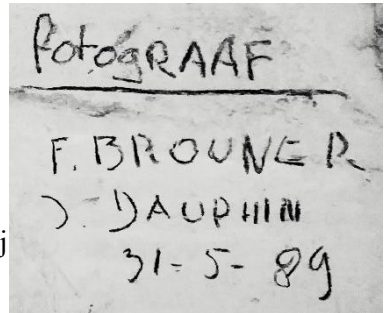 fotogRAAF
F. BROUNER
J. DAUPHIN
j
31-5-89